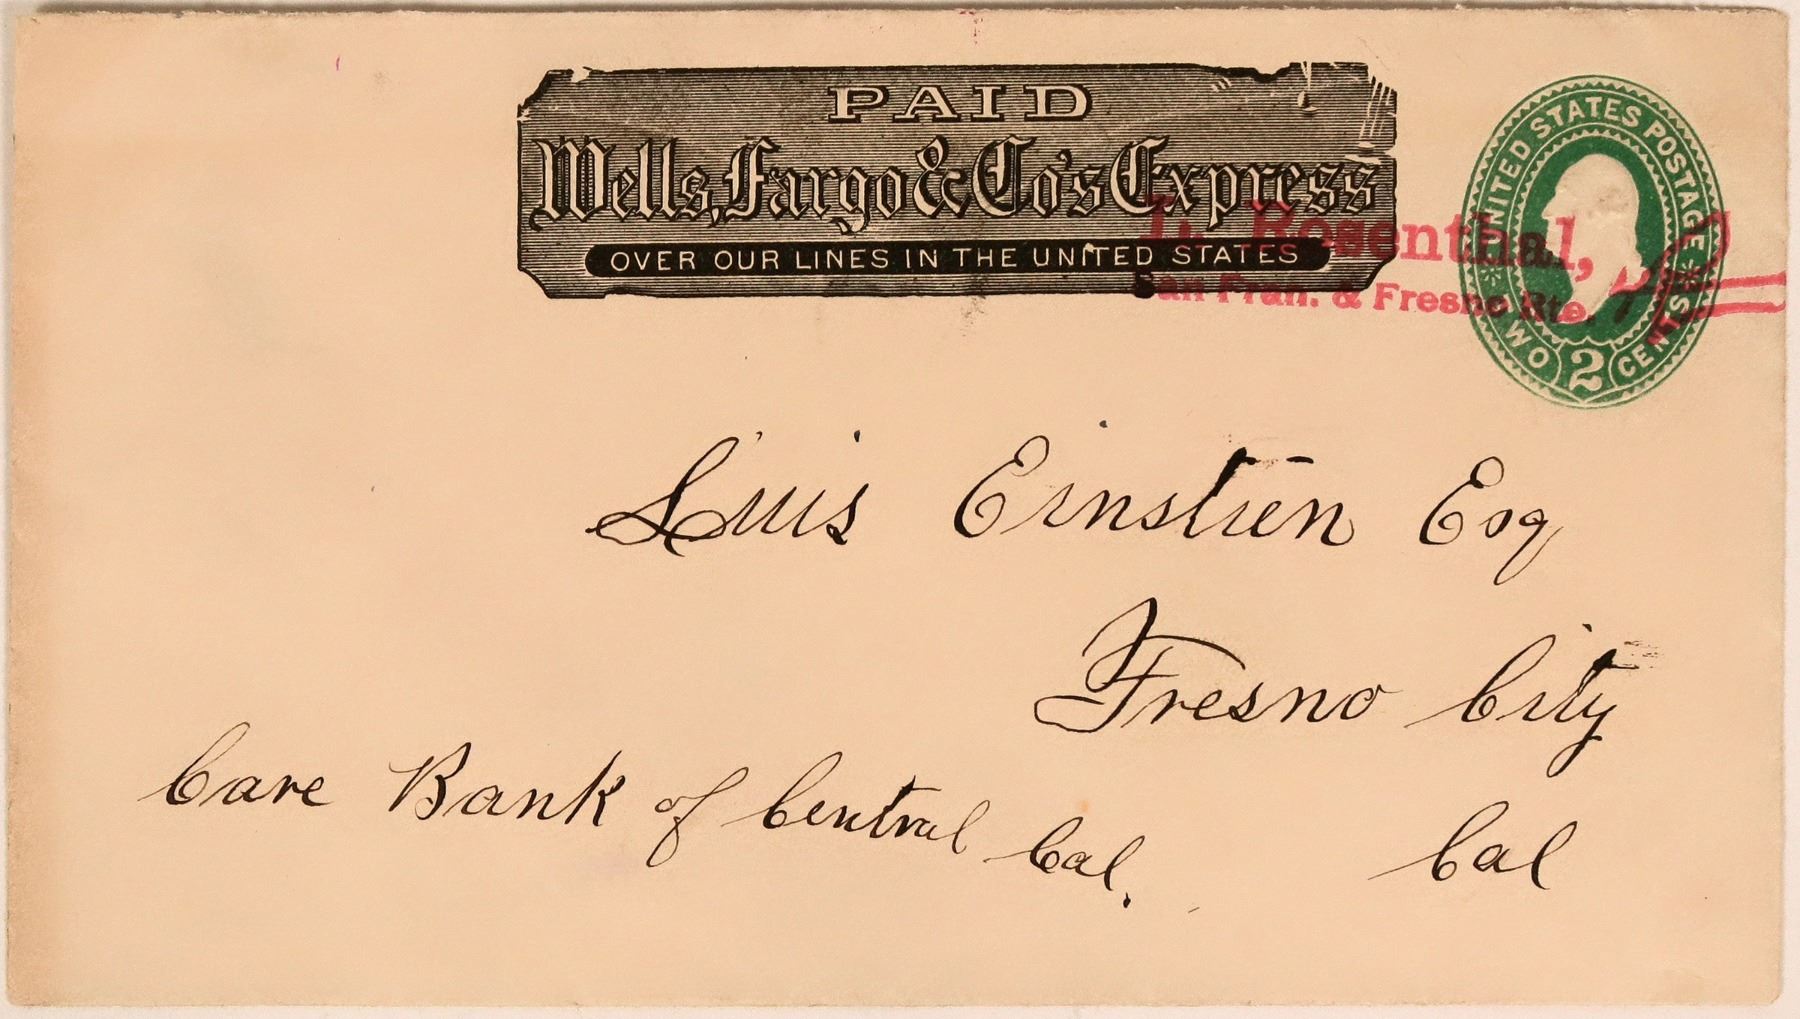 PAID
Wells, Fargo & Co's Express
OVER OUR LINES IN THE UNITED STATES
UNITED STATES POSTAGE
TWO 2 CENTS
Rosenthal,
San Fran. & Fresno Rte.
Luis Einstien Esq
Fresno City
Care Bank of Central Cal.
Cal